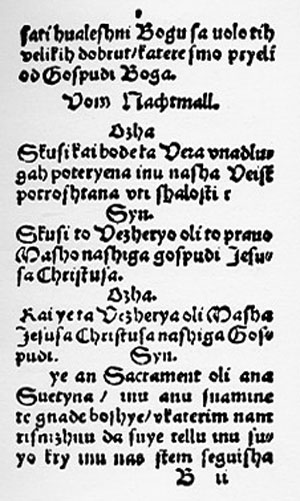 sati hualeshni Bogu sa uolo tih
velikih dobrut/ katere smo pryeli
od Gospudi Boga.
Vom Nachtmall.
Ozha
Skusi kai bode ta Vera vnadlu-
gah poteryena inu nasha Veist
potroshtana vti shalosti ?
Syn.
Skusi to Vezheryo oli to prauo
Masho nashiga gospudi Jesu-
sa Christusa.
Ozha.
Kai ye ta Vezherya oli Masha
Jesusa Christusa nashiga Gos-
pudi. Syn.
ye an Sacrament oli ana
Suetyna / inu anu snamine
te gnade boshye/ vkaterim nam
risnizhnu da suye tellu inu su-
yo kry inu nas stem seguisha
B ii